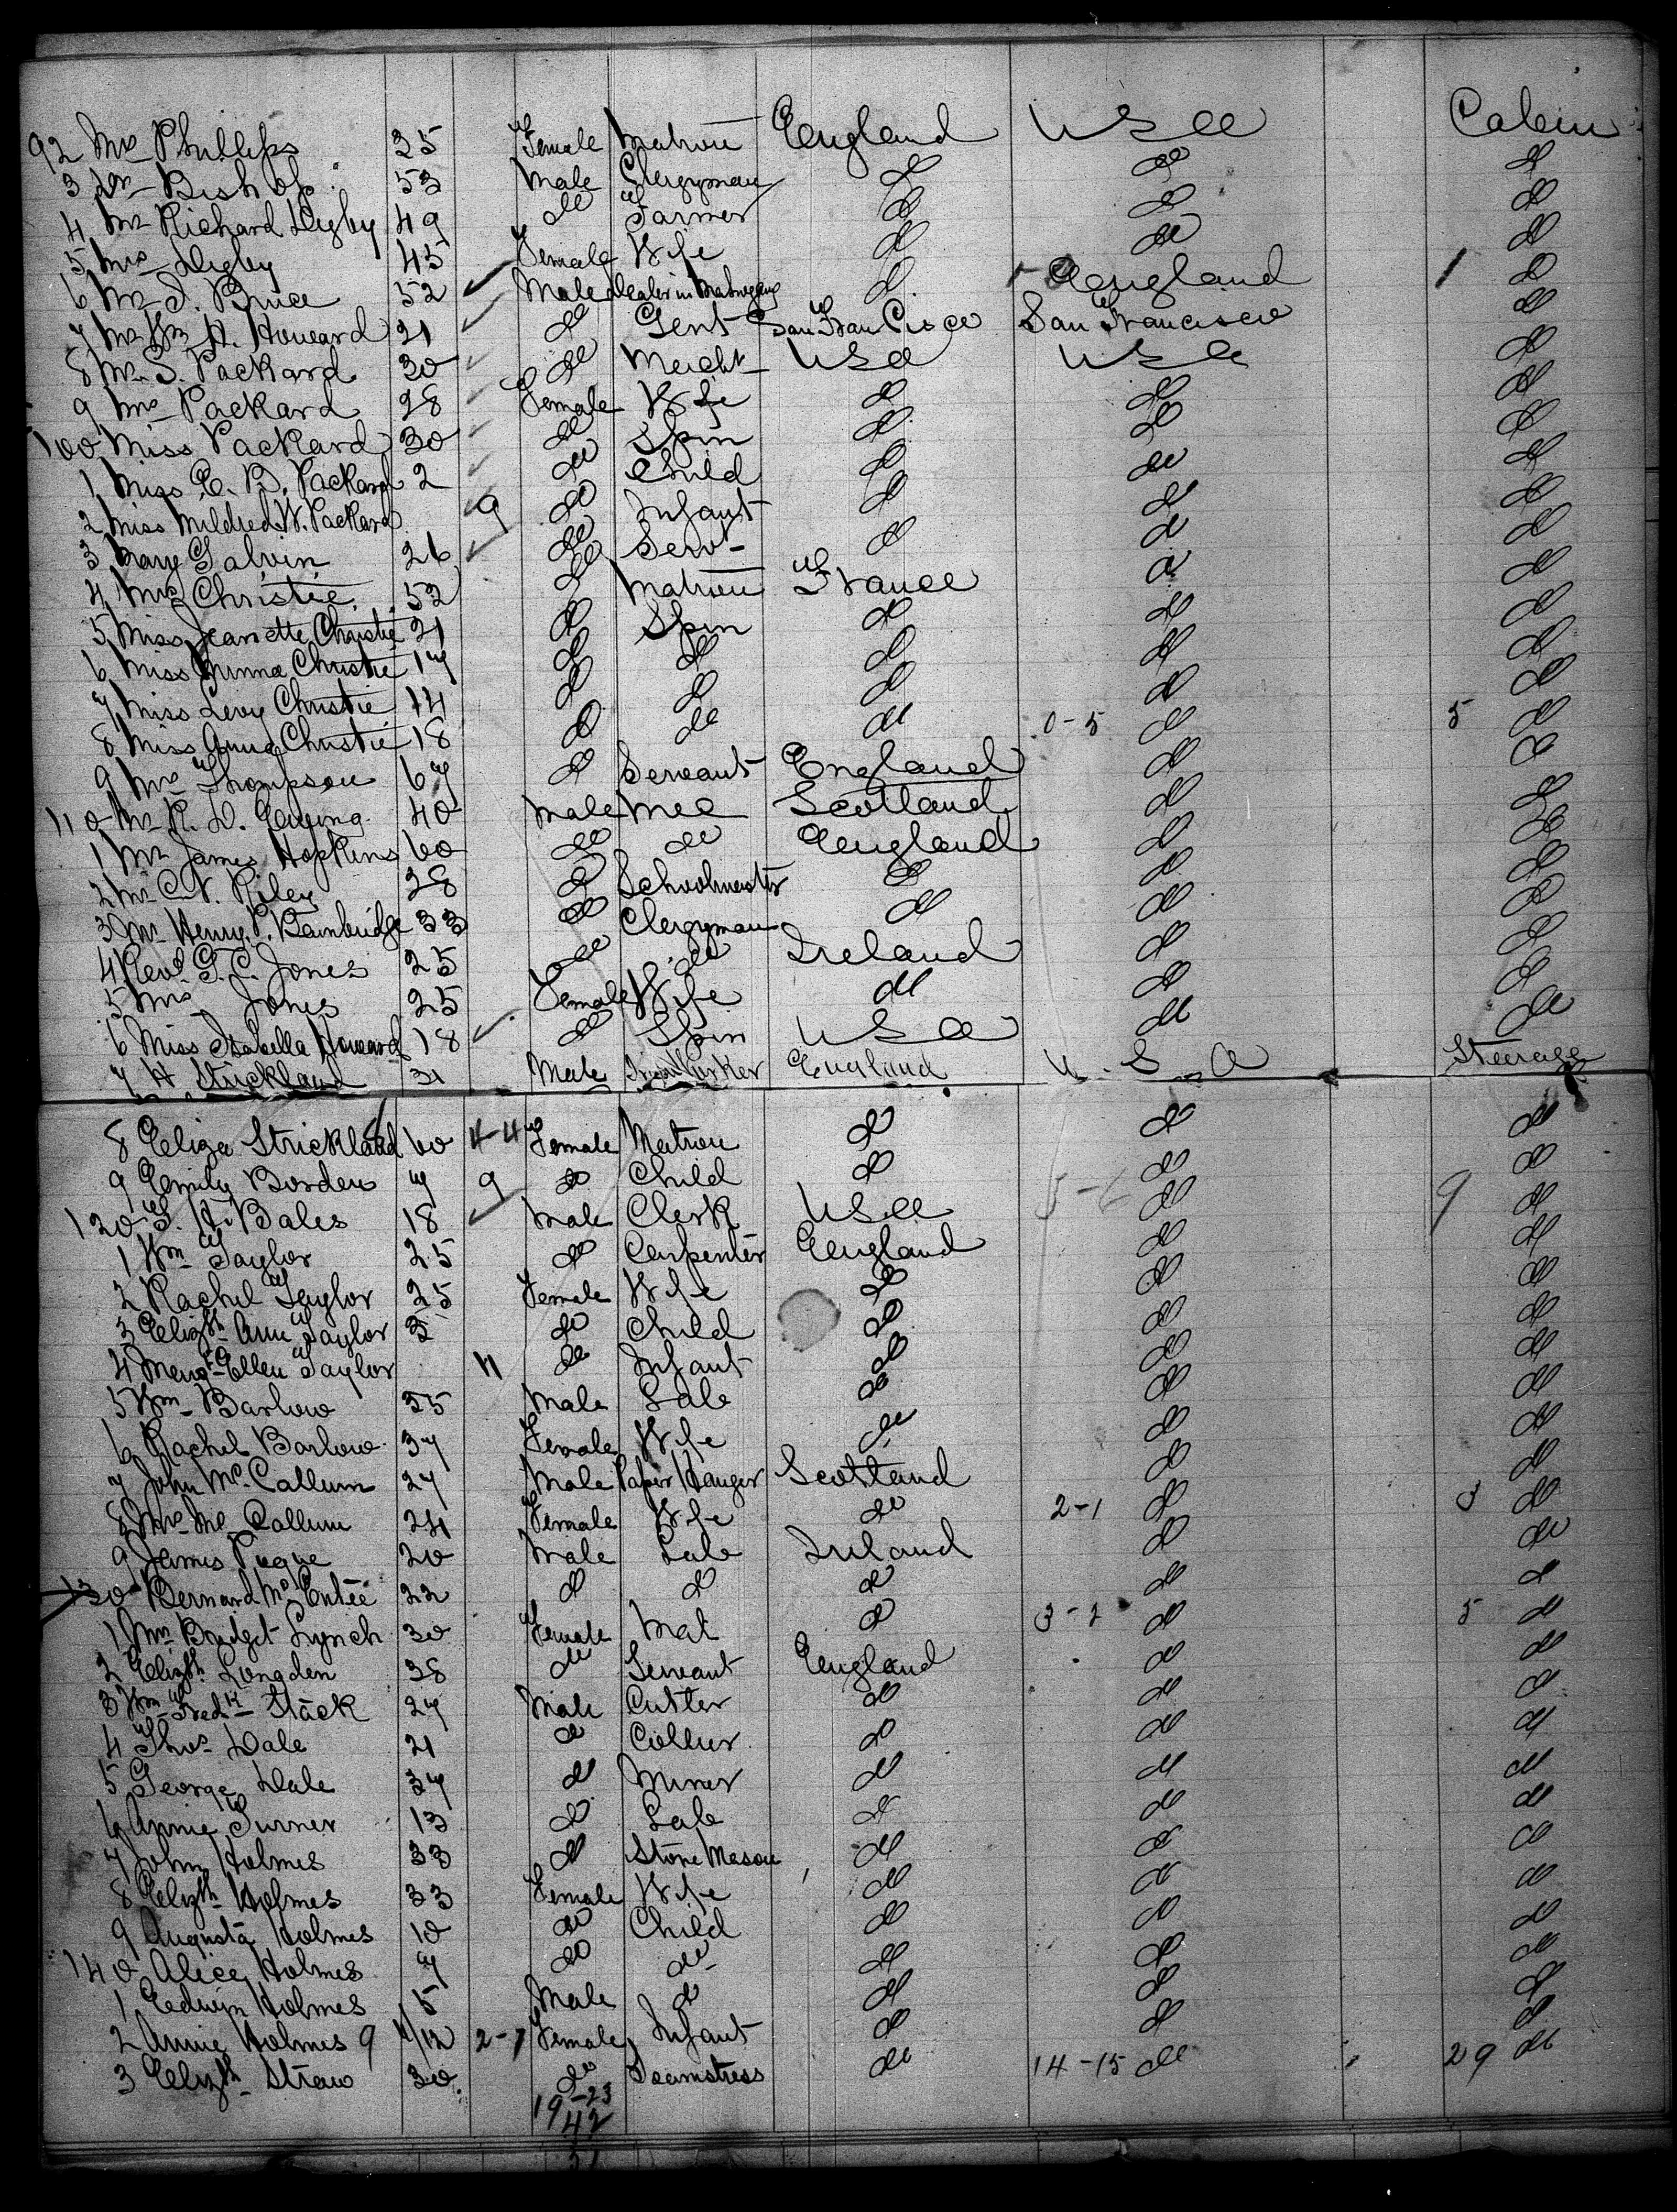 92 Mrs Phillips 25 Female Matron England USA Cabin
3 Dr Bishop 53 Male Clergyman do do do
4 Mr Richard Digby 49 do Farmer do do do
5 Mrs Digby 45 Female Wife do do do
6 Mr S. Bruce 52 Male Dealer in Mahogany do England 1 do
7 Mr Wm H. Howard 21 do Gent San Francisco San Francisco do
8 Mr S. Packard 30 do Mercht USA USA do
9 Mrs Packard 28 Female Wife do do do
100 Miss Packard 30 do Spin do do do
1 Miss E. B. Packard 2 do Child do do do
2 Miss Mildred W. Packard 9 do Infant do do do
3 Mary Galvin 26 do Servt do do do
4 Mrs Christie 52 do Matron France do do
5 Miss Jeanette Christie 21 do Spin do do do
6 Miss Christie 17 do do do do do
7 Miss Levy Christie 14 do do do do do
8 Miss Anna Christie 18 do do do 0-5 do 5 do
9 Mrs Thompson 67 do Servant England do do
110 Mr R. D. Ewing 40 Male Mec Scotland do do
1 Mr James Hopkins 60 do do England do do
2 Mr C. N. Riley 28 do Schoolmaster do do do
3 Mr Henry P. Bainbridge 33 do Clergyman do do do
4 Revd G. C. Jones 25 do do Ireland do do
5 Mrs Jones 25 Female Wife do do do
6 Miss Isabella Howard 18 do Spin USA do do
7 H Strickland 31 Male England U.S.A Steerage
8 Eliza Strickland 60 4-4 Female Matron do do do
9 Emily Borden 7 9 do Child do 5-6 do 9 do
120 S. H. Bales 18 Male Clerk USA do do
1 Wm Taylor 25 do Carpenter England do do
2 Rachel Taylor 25 Female Wife do do do
3 Elizth Ann Taylor 3 do Child do do do
4 Margt Ellen Taylor 11 do Infant do do do
5 Wm Barlow 35 Male Lab do do do
6 Rachel Barlow 37 Female Wife do do do
7 John McCallum 27 Male Paper Hanger Scotland do do
8 Mrs McCallum 24 Female Wife do 2-1 do 3 do
9 James Pugue 20 Male Lab Ireland do do
130 Bernard McEntee 22 do do do do do
1 Mrs Bridget Lynch 30 Female Mat do 3-2 do 5 do
2 Elizth Longden 38 do Servant England do do
3 Wm Fredk Stack 27 Male Cutter do do do
4 Thos Dale 21 do Collier do do do
5 George Dale 37 do Miner do do do
6 Annie Turner 13 do Lab do do do
7 John Holmes 33 do Stone Mason do do do
8 Elizth Holmes 33 Female Wife do do do
9 Augusta Holmes 10 do Child do do do
140 Alice Holmes 7 do do do do do
1 Edwin Holmes 5 Male do do do do
2 Annie Holmes 9 /12 2-1 Female Infant do do do
3 Elizth Straw 30 do Seamstress do 14-15 do 29 do
19-23
42